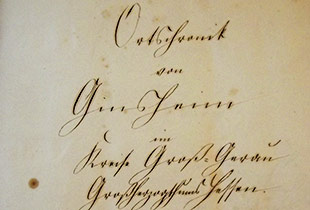 Ortschronik
von
Ginsheim
im
Kreise Groß-Gerau
Großherzogthums Hessen.